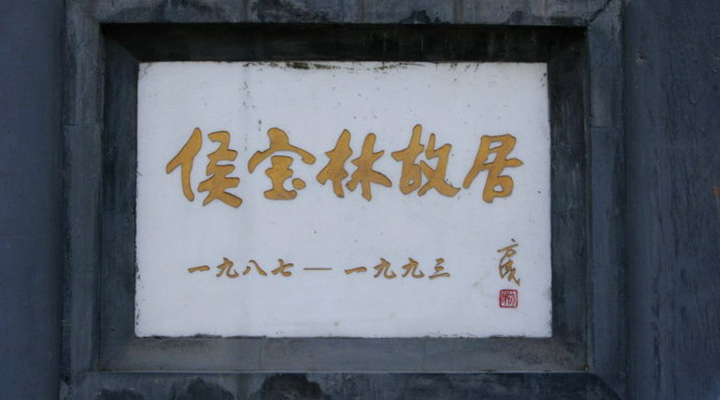 侯宝林故居
一九八七—一九九三
方成